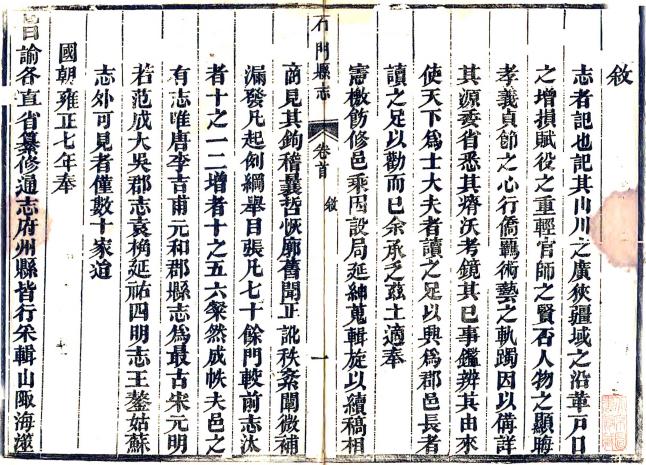 敘
志者記也記其山川之廣狹疆域之沿革戸口
之增損賦役之重輕官師之賢否人物之顯晦
孝義貞節之心行僑羈術藝之軌躅因以備詳
其源委省悉其瘠沃考鏡其已事鑑辨其由來
使天下爲士大夫者讀之足以興爲郡邑長者
讀之足以勸而已余承乏茲土適奉
憲檄飭修邑乘因設局延紳蒐輯旋以續稿相
石門縣志 卷首 敘 一
商見其鉤稽曩哲恢廓舊聞正訛秩紊闡微補
漏發凡起例綱舉目張凡七十餘門較前志汰
者十之一二增者十之五六粲然成帙夫邑之
有志唯唐李吉甫元和郡縣志爲最古宋元明
若范成大吳郡志袁桷延祐四明志王鏊姑蘇
志外可見者僅數十家迨
國朝雍正七年奉
旨諭各直省纂修通志府州縣皆行采輯山陬海澨